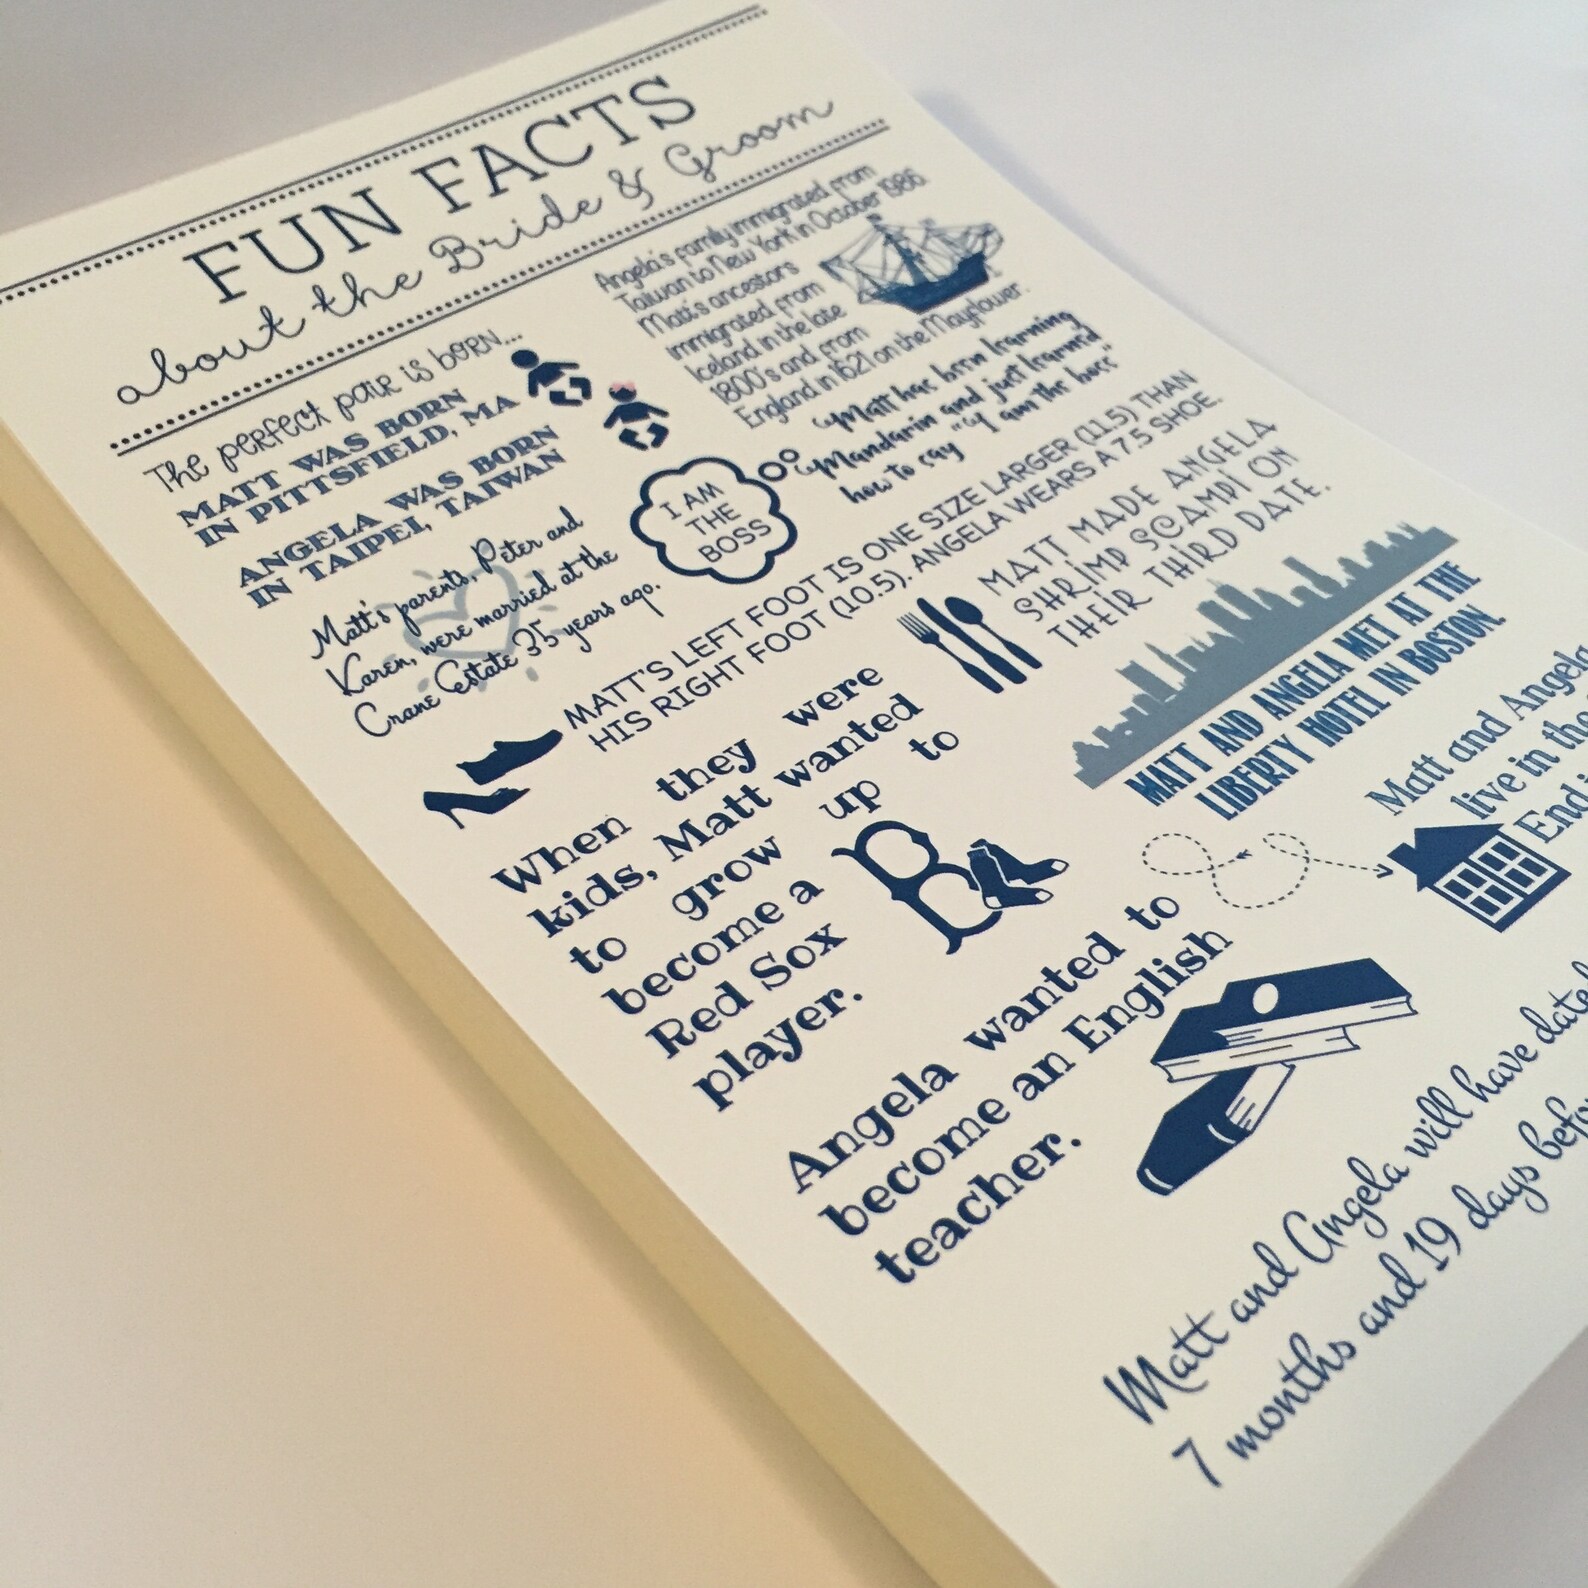 FUN FACTS
about the Bride & Groom
The perfect pair is born...
MATT WAS BORN
IN PITTSFIELD, MA
ANGELA WAS BORN
IN TAIPEI, TAIWAN
Angela's family immigrated from
Taiwan to New York in October 1986.
Matt's ancestors
immigrated from
Iceland in the late
1800's and from
England in 1621 on the Mayflower.
Matt's parents, Peter and
Karen, were married at the
Crane Estate 35 years ago.
I AM
THE
BOSS
Matt has been learning
Mandarin and just learned
how to say "I am the boss"
MATT'S LEFT FOOT IS ONE SIZE LARGER (11.5) THAN
HIS RIGHT FOOT (10.5). ANGELA WEARS A 7.5 SHOE.
MATT MADE ANGELA
SHRIMP SCAMPI ON
THEIR THIRD DATE.
When they were
kids, Matt wanted
to grow up to
become a
Red Sox
player.
B
MATT AND ANGELA MET AT THE
LIBERTY HOTEL IN BOSTON.
Matt and Angela
live in the
End
Angela wanted to
become an English
teacher.
Matt and Angela will have dated
7 months and 19 days before